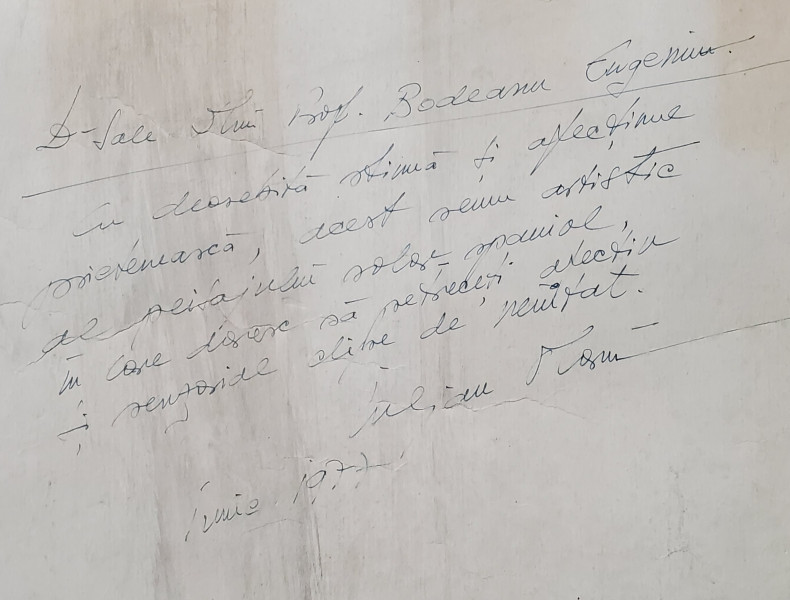 D-Sale Dlui Prof. Bodeanu Eugeniu.
Cu deosebită stimă și afecțiune
prietenească, acest semn artistic
al peisajului solar spaniol,
în care doresc să petreceți afectiv
și senzorial clipe de neuitat.
Iulian
Iunie 1977.